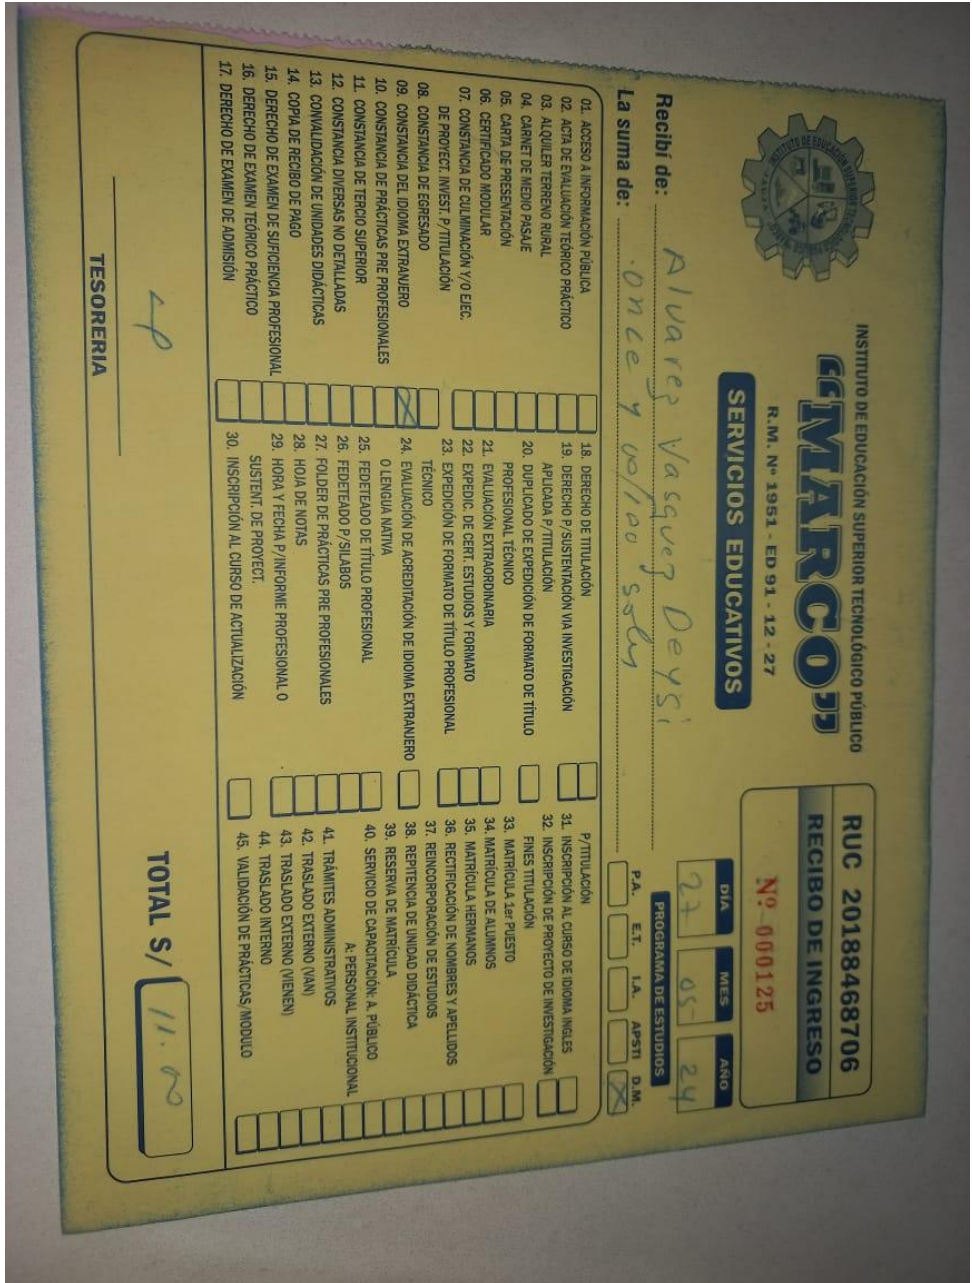 INSTITUTO DE EDUCACIÓN SUPERIOR TECNOLÓGICO PÚBLICO
“MARCO”
R.M. Nº 1951 - ED 91 - 12 - 27
SERVICIOS EDUCATIVOS
RUC 20188468706
RECIBO DE INGRESO
Nº 000125
DÍA MES AÑO
27 05 24
PROGRAMA DE ESTUDIOS
P.A. E.T. I.A. APSTI D.M.
X
Recibí de: Alvarez Vasquez Deysi
La suma de: once y 00/100 soles
01. ACCESO A INFORMACIÓN PÚBLICA
02. ACTA DE EVALUACIÓN TEÓRICO PRÁCTICO
03. ALQUILER TERRENO RURAL
04. CARNET DE MEDIO PASAJE
05. CARTA DE PRESENTACIÓN
06. CERTIFICADO MODULAR
07. CONSTANCIA DE CULMINACIÓN Y/O EJEC.
DE PROYECT. INVEST. P/TITULACIÓN
08. CONSTANCIA DE EGRESADO
09. CONSTANCIA DEL IDIOMA EXTRANJERO X
10. CONSTANCIA DE PRÁCTICAS PRE PROFESIONALES
11. CONSTANCIA DE TERCIO SUPERIOR
12. CONSTANCIA DIVERSAS NO DETALLADAS
13. CONVALIDACIÓN DE UNIDADES DIDÁCTICAS
14. COPIA DE RECIBO DE PAGO
15. DERECHO DE EXAMEN DE SUFICIENCIA PROFESIONAL
16. DERECHO DE EXAMEN TEÓRICO PRÁCTICO
17. DERECHO DE EXAMEN DE ADMISIÓN
18. DERECHO DE TITULACIÓN
19. DERECHO P/SUSTENTACIÓN VIA INVESTIGACIÓN
APLICADA P/TITULACIÓN
20. DUPLICADO DE EXPEDICIÓN DE FORMATO DE TÍTULO
PROFESIONAL TÉCNICO
21. EVALUACIÓN EXTRAORDINARIA
22. EXPEDIC. DE CERT. ESTUDIOS Y FORMATO
23. EXPEDICIÓN DE FORMATO DE TÍTULO PROFESIONAL
TÉCNICO
24. EVALUACIÓN DE ACREDITACIÓN DE IDIOMA EXTRANJERO
O LENGUA NATIVA
25. FEDETEADO DE TÍTULO PROFESIONAL
26. FEDETEADO P/SILABOS
27. FOLDER DE PRÁCTICAS PRE PROFESIONALES
28. HOJA DE NOTAS
29. HORA Y FECHA P/INFORME PROFESIONAL O
SUSTENT. DE PROYECT.
30. INSCRIPCIÓN AL CURSO DE ACTUALIZACIÓN
P/TITULACIÓN
31. INSCRIPCIÓN AL CURSO DE IDIOMA INGLES
32. INSCRIPCIÓN DE PROYECTO DE INVESTIGACIÓN
FINES TITULACIÓN
33. MATRÍCULA 1er PUESTO
34. MATRÍCULA DE ALUMNOS
35. MATRÍCULA HERMANOS
36. RECTIFICACIÓN DE NOMBRES Y APELLIDOS
37. REINCORPORACIÓN DE ESTUDIOS
38. REPITENCIA DE UNIDAD DIDÁCTICA
39. RESERVA DE MATRÍCULA
40. SERVICIO DE CAPACITACIÓN: A. PÚBLICO
A: PERSONAL INSTITUCIONAL
41. TRÁMITES ADMINISTRATIVOS
42. TRASLADO EXTERNO (VAN)
43. TRASLADO EXTERNO (VIENEN)
44. TRASLADO INTERNO
45. VALIDACIÓN DE PRÁCTICAS/MODULO
TESORERIA
TOTAL S/ 11.00